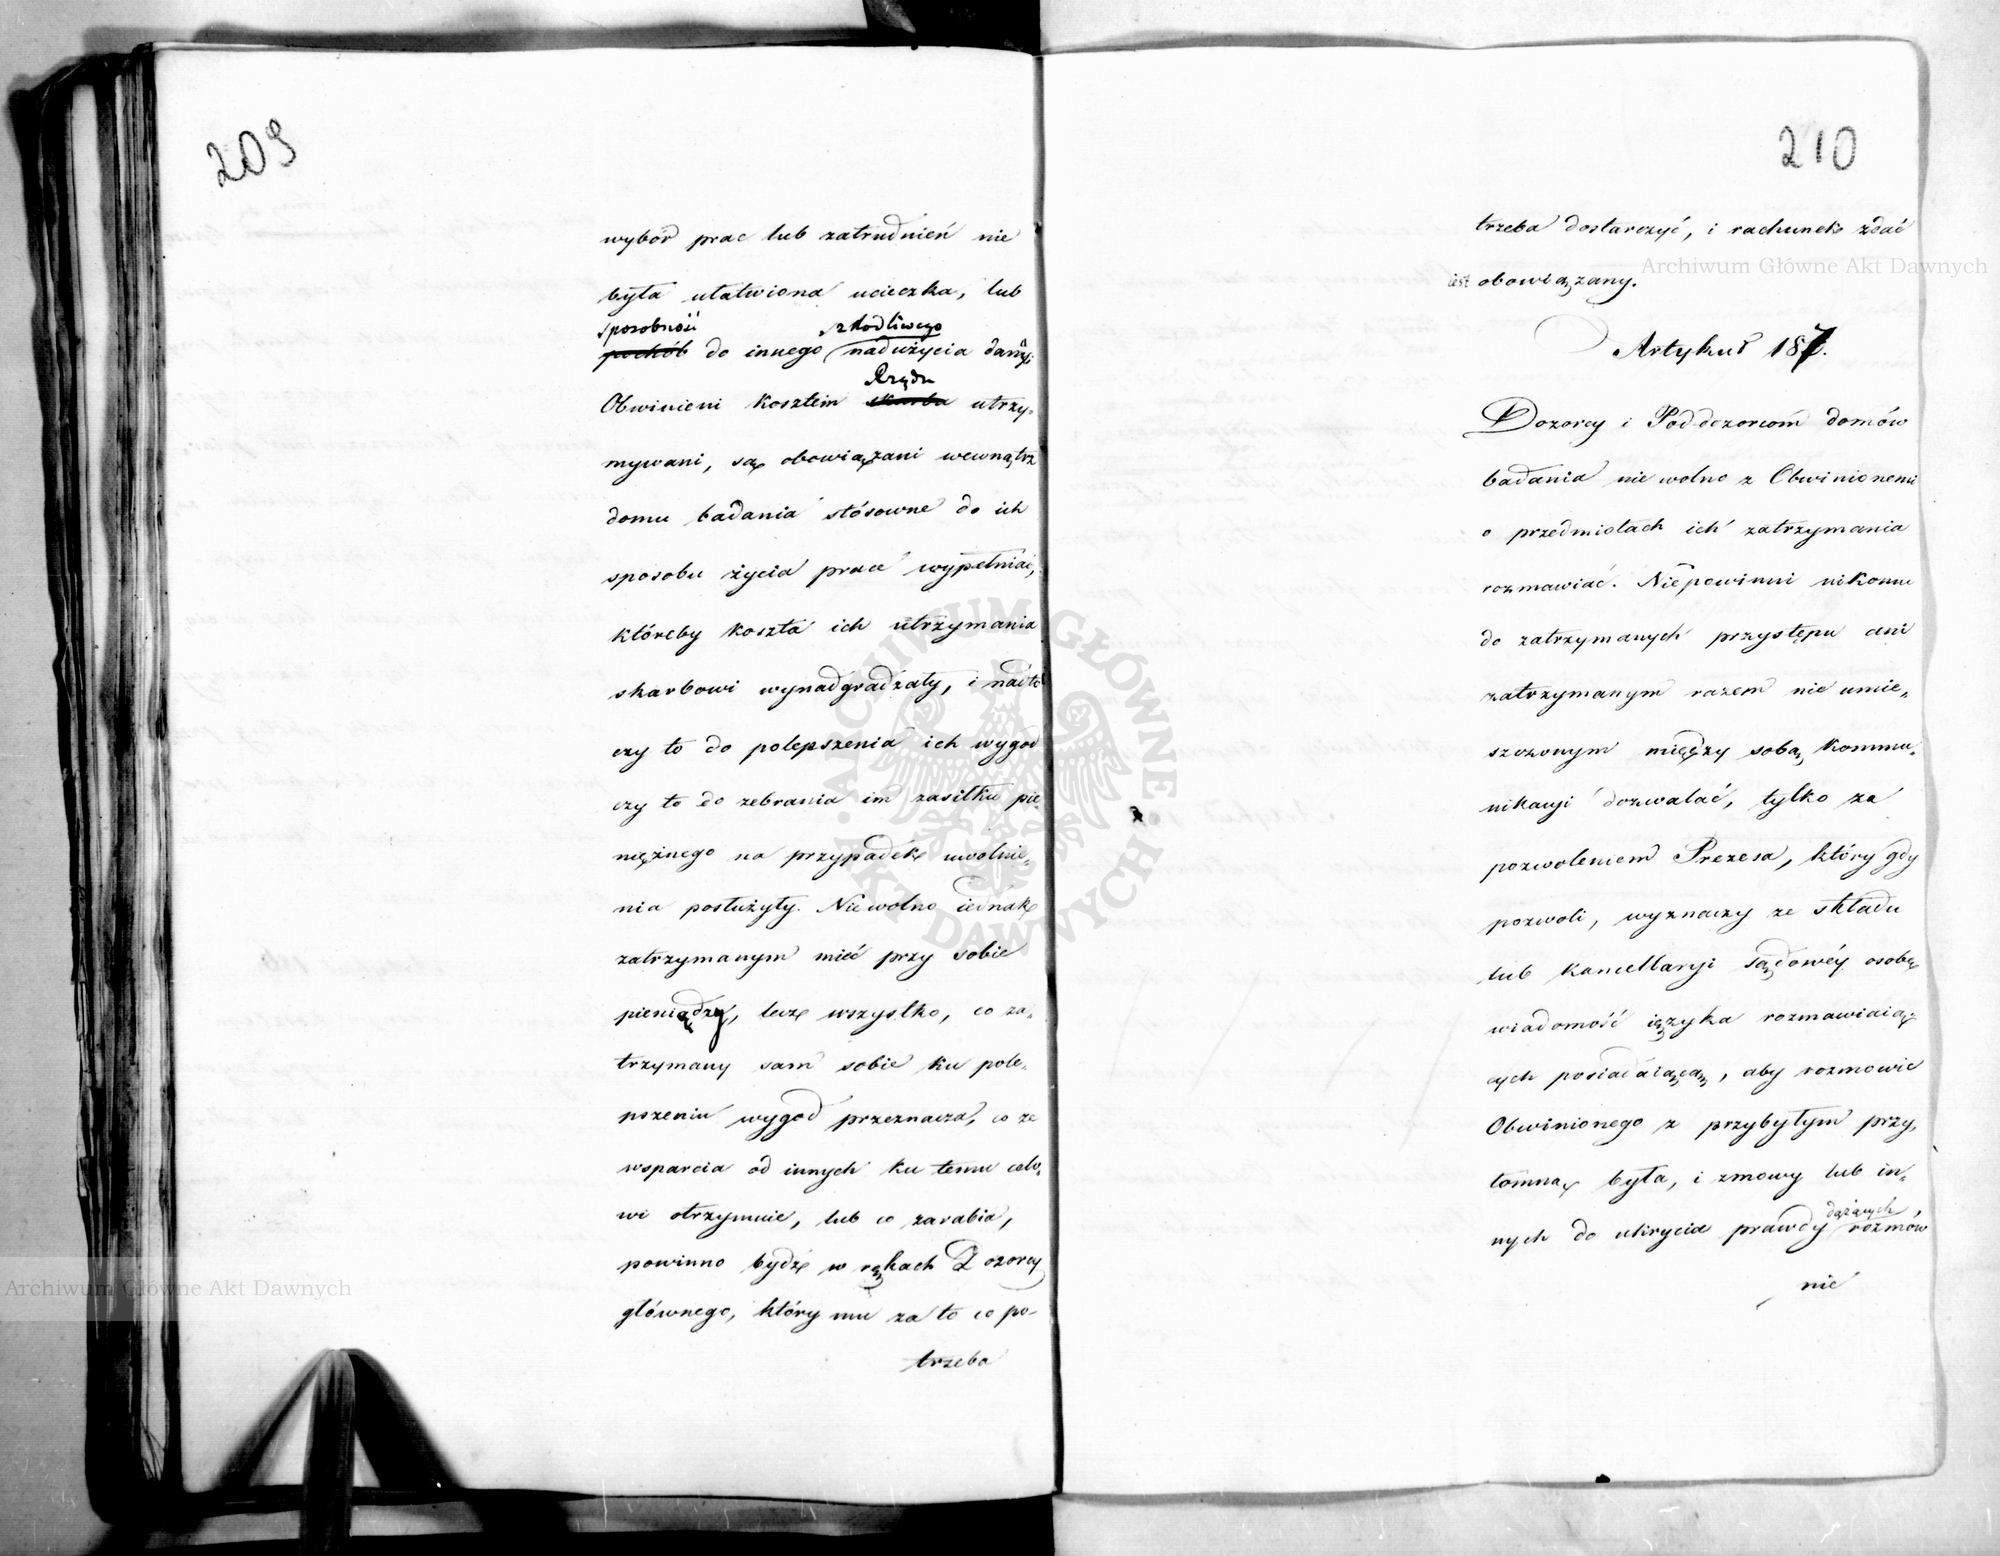 209
wybor prac lub zatrudnień nie
była ułatwiona ucieczka, lub
sposobność szkodliwego
pochób do innego nadużycia daną.
Rządu
Obwinieni kosztem skarbu utrzy-
mywani, są obowiązani wewnątrz
domu badania stósowne do ich
sposobu życia prace wypełniać,
któreby koszta ich utrzymania
skarbowi wynadgradzały, i nadto
czy to do polepszenia ich wygod
czy to do zebrania im zasiłku pie
niężnego na przypadek uwolnie-
nia posłużyły. Niewolno iednak
zatrzymanym mieć przy sobie
pieniędzy, lecz wszystko, co za-
trzymany sam sobie ku pole-
pszeniu wygod przeznacza, co ze
wsparcia od innych ku temu celo-
wi otrzymuie, lub co zarabia,
powinno bydź w rękach Dozorcy
głównego, który mu za to co po-
trzeba
210
trzeba dostarczyć, i rachunek zdać
iest obowiązany.
Artykuł 187.
Dozorcy i Poddozorcom domów
badania nie wolno z Obwinionemi
o przedmiotach ich zatrzymania
rozmawiać. Niepowinni nikomu
do zatrzymanych przystępu ani
zatrzymanym razem nie umie-
szczonym między sobą kommu-
nikacyi dozwalać, tylko za
pozwoleniem Prezesa, który gdy
pozwoli, wyznaczy ze składu
lub kancellaryi sądowéy osobę
wiadomość ięzyka rozmawiaią-
cych posiadaiącą, aby rozmowie
Obwinionego z przybyłym przy-
tomną była, i zmowy lub in-
dążących,
nych do ukrycia prawdy rozmow
nie
Archiwum Główne Akt Dawnych
Archiwum Główne Akt Dawnych
ARCHIWUM GŁÓWNE AKT DAWNYCH